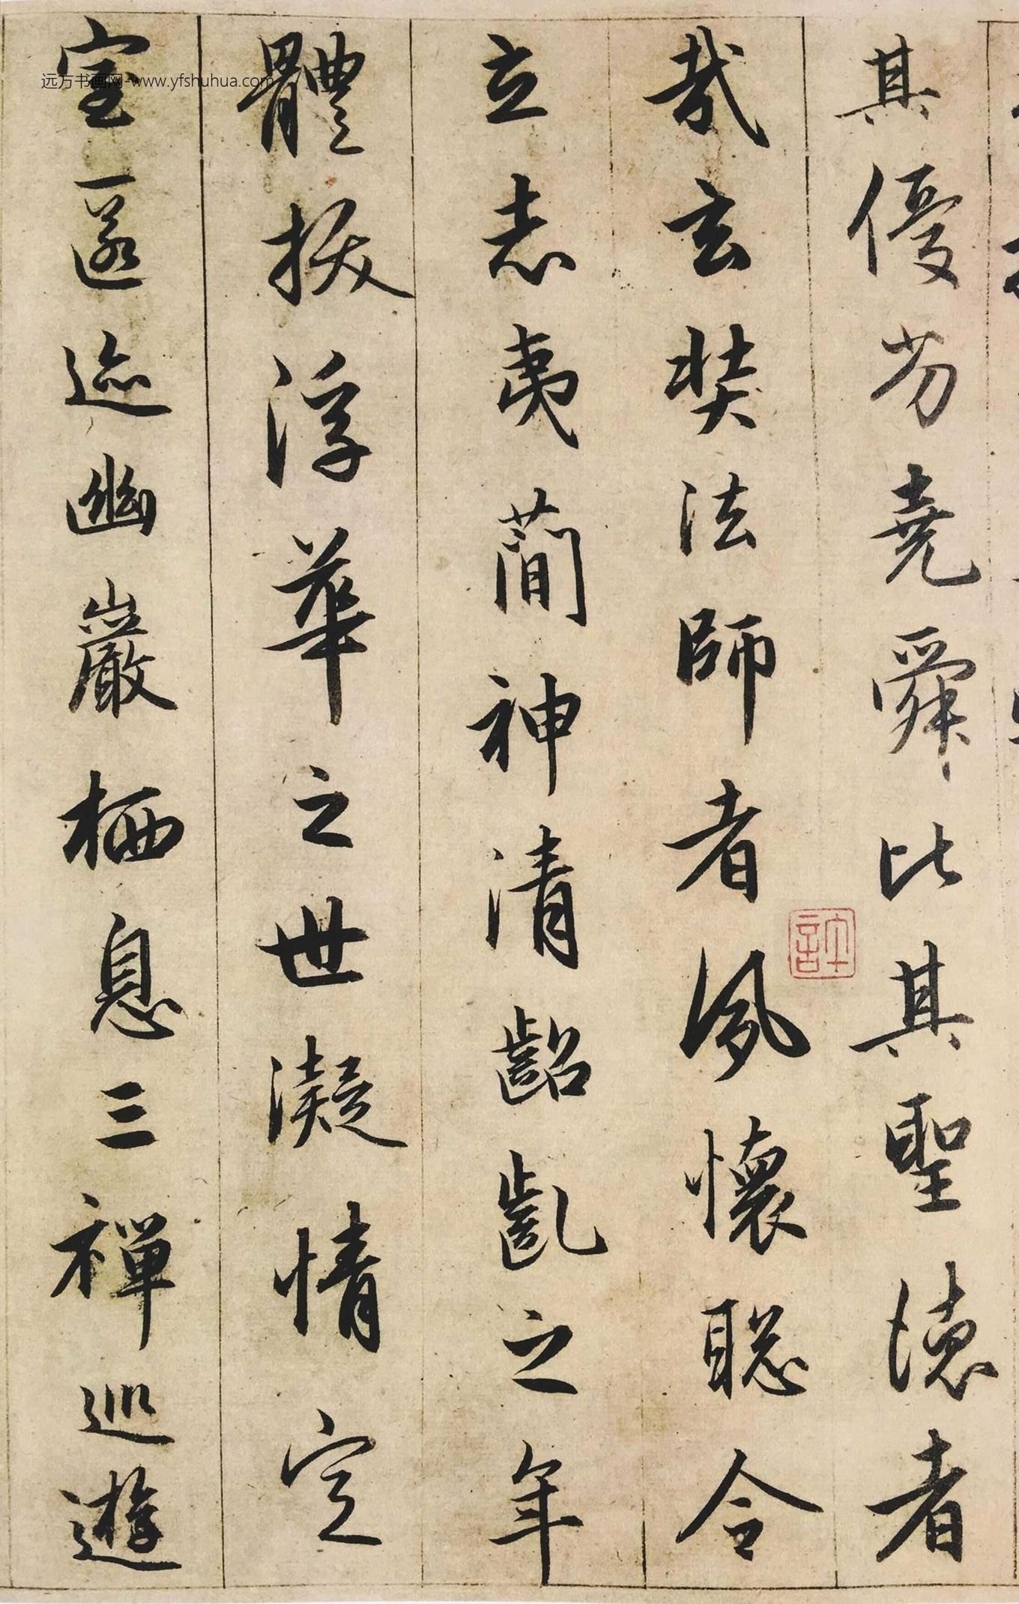 其優劣堯舜比其聖德者
哉玄奘法師者夙懷聰令
立志夷蕳神清齠齔之年
體拔浮華之世凝情定
室匿迹幽巖栖息三禪巡遊
远方书画网-www.yfshuhua.com
許